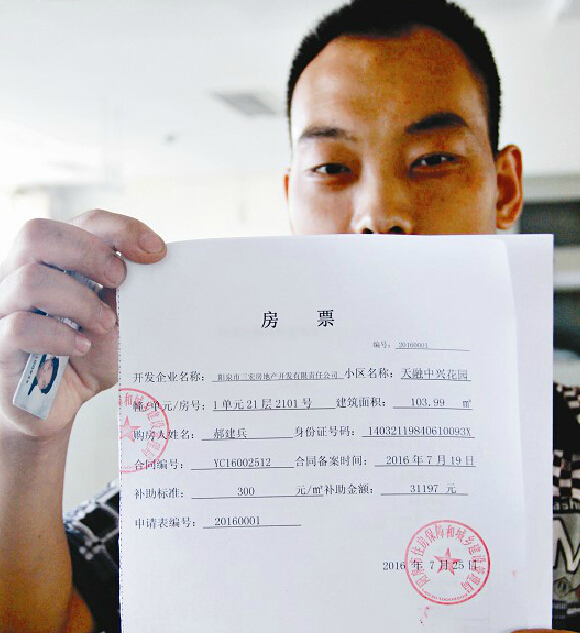 房 票
编号: 20160001
开发企业名称: 阳泉市三荣房地产开发有限责任公司 小区名称: 天融中兴花园
幢/单元/房号: 1单元21层2101号 建筑面积: 103.99 ㎡
购房人姓名: 郝建兵 身份证号码: 14032119840610093X
合同编号: YC16002512 合同备案时间: 2016年7月19日
补助标准: 300 元/㎡ 补助金额: 31197 元
申请表编号: 20160001
阳泉市住房保障和城乡建设管理局
2016年 7月25日